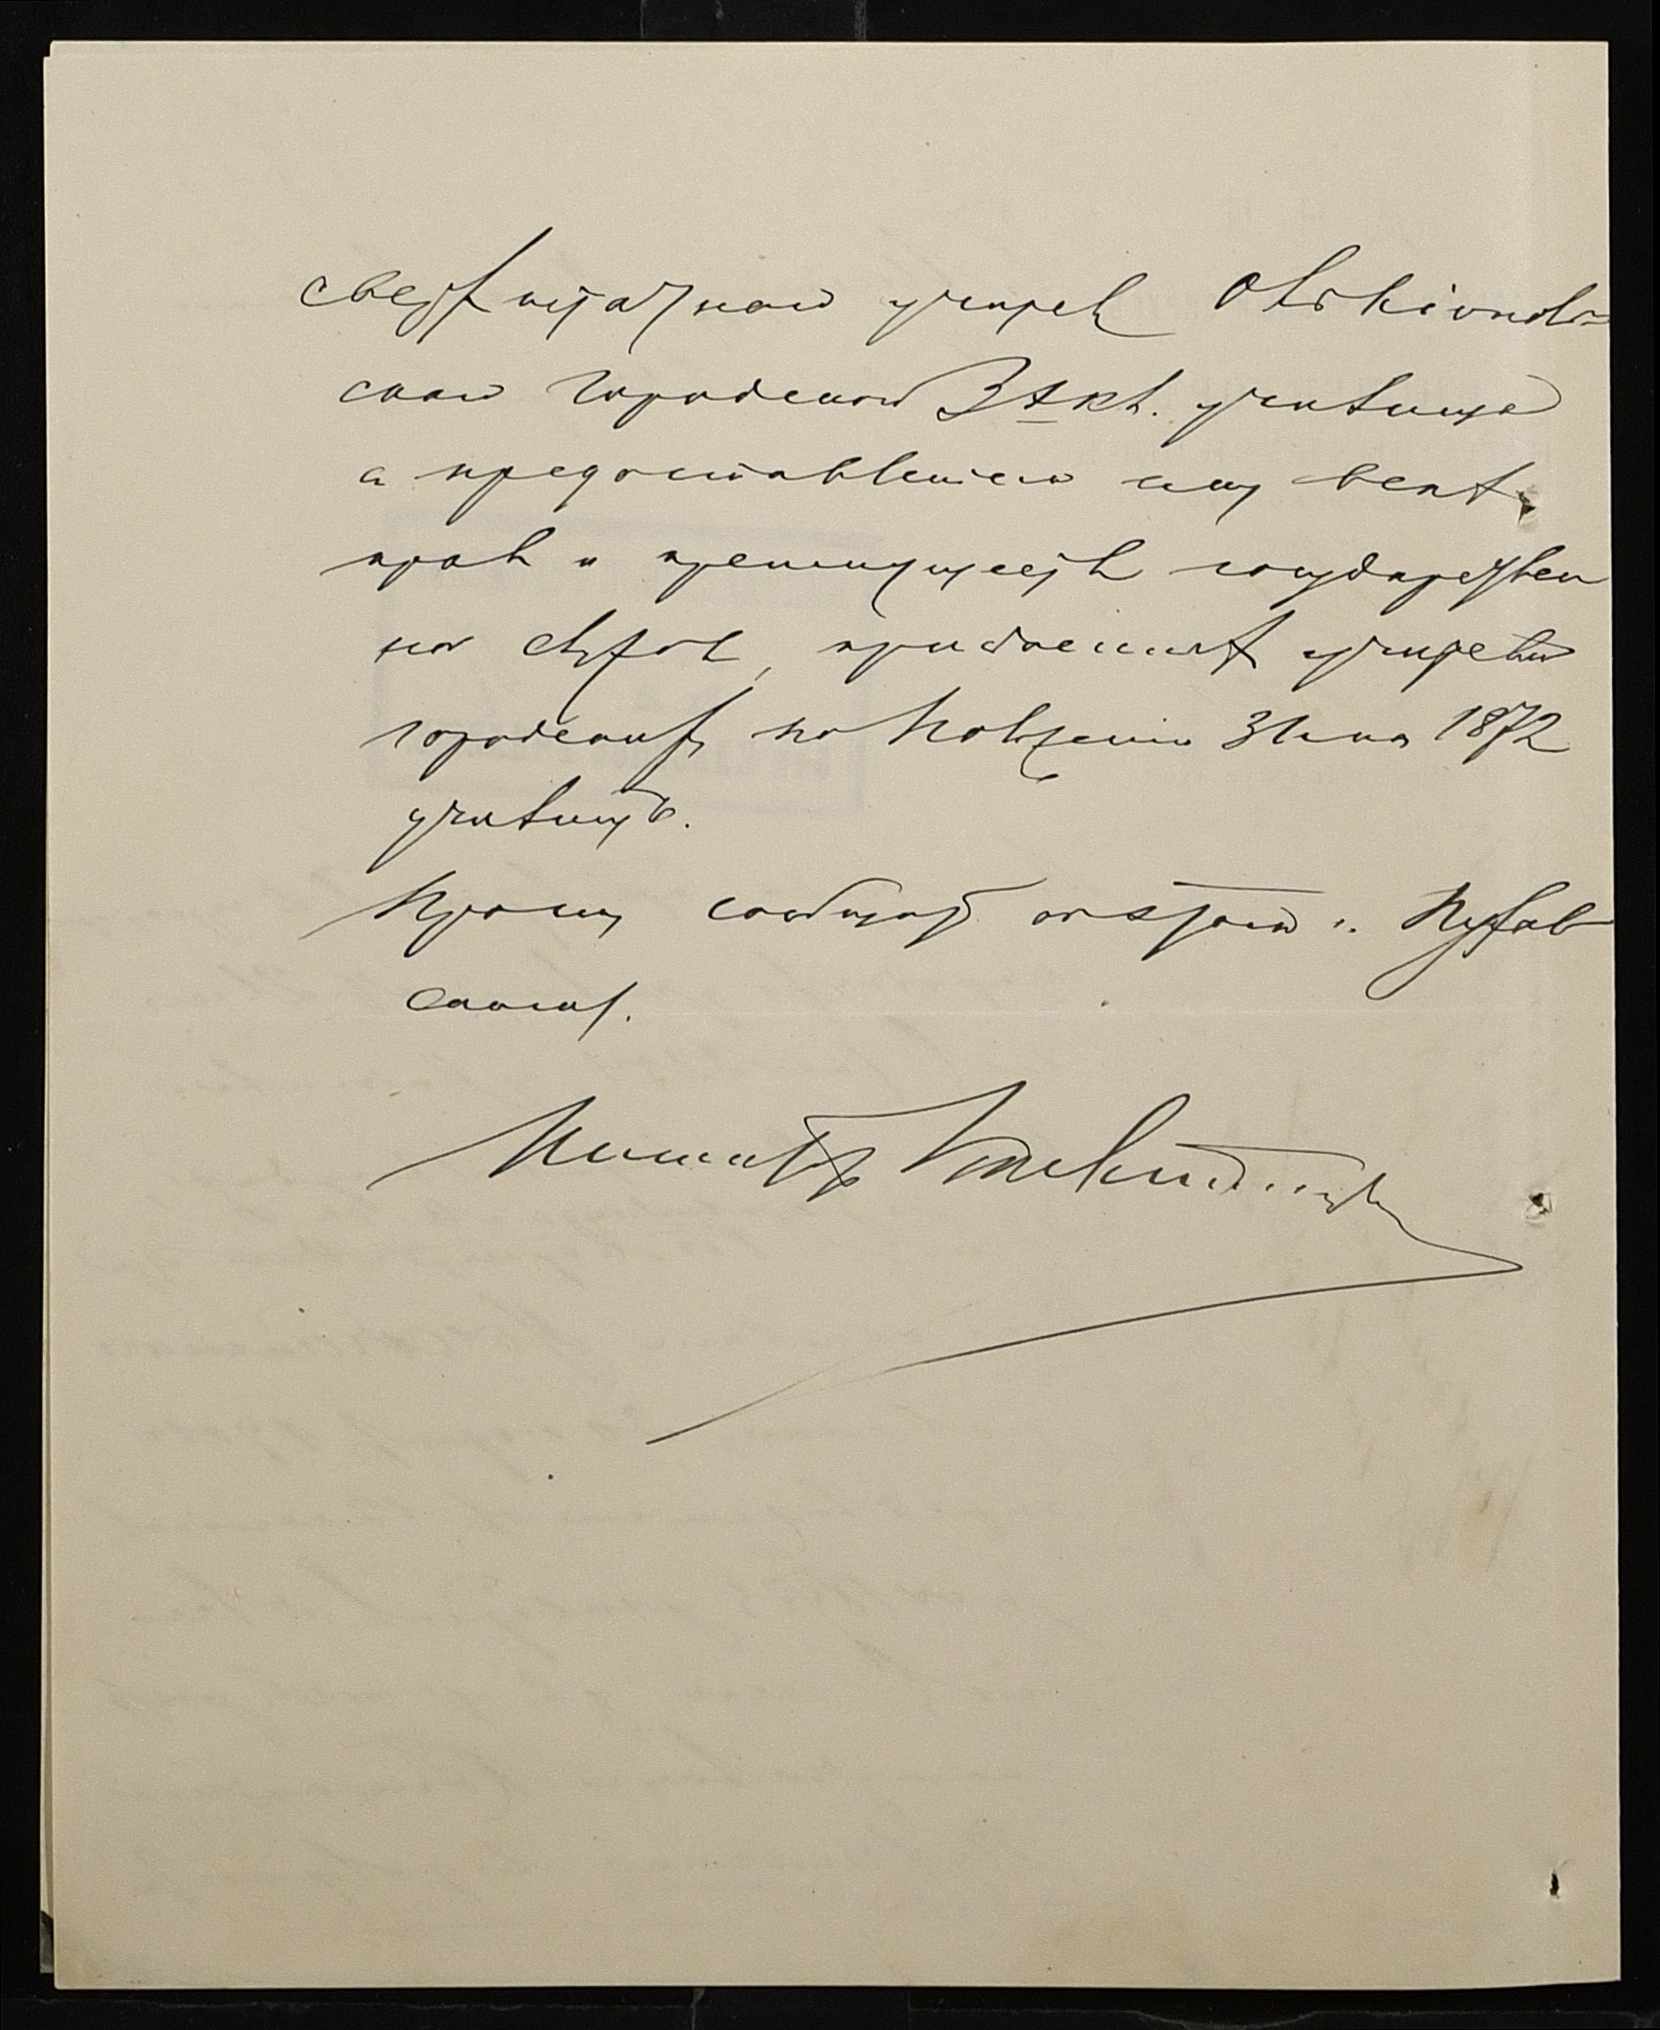 сверхштатнаго учителя
скаго городского 3хъ кл. училища
с предоставлением ему всех
прав и преимуществ государствен
ной службы, присвоенных учителям
городских по Положению 31 мая 1872
училищ.
Прошу сообщить об этом г.
скому.
Инспектор